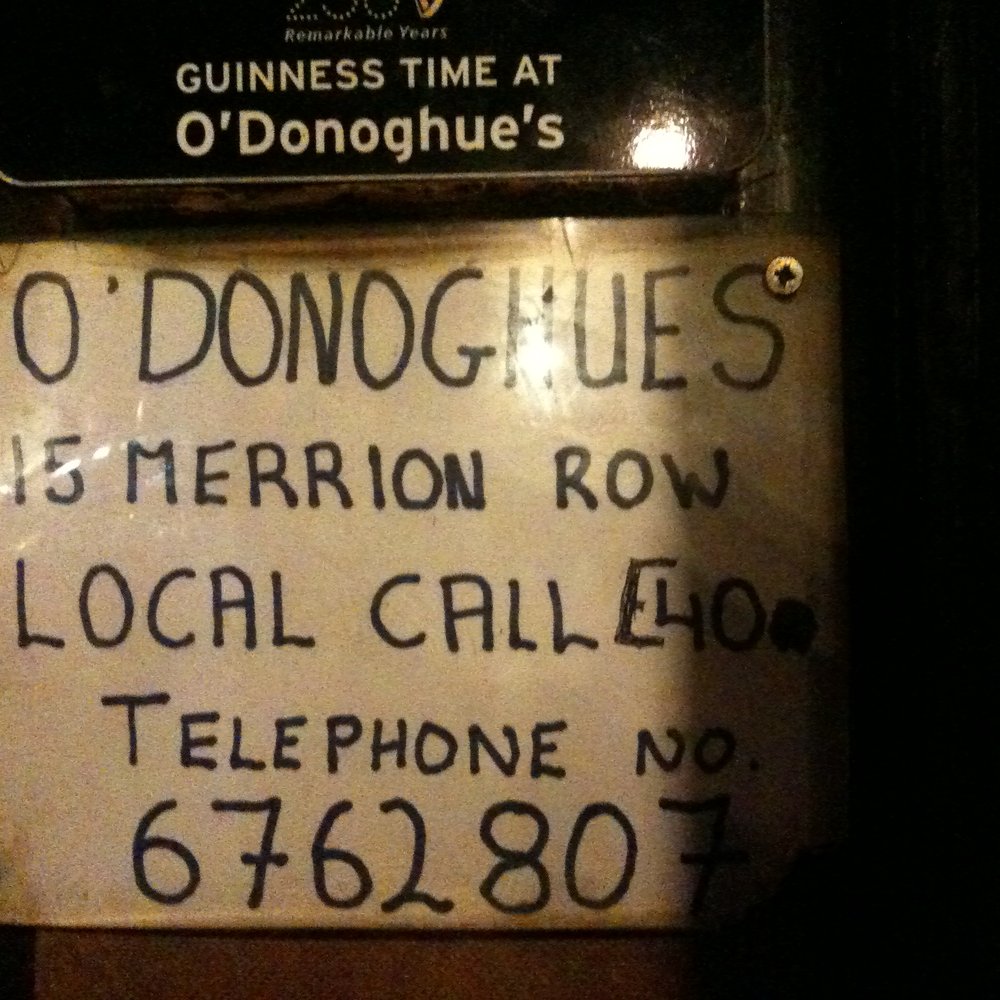 Remarkable Years
GUINNESS TIME AT
O'Donoghue's
O'DONOGHUES
15 MERRION ROW
LOCAL CALL E40
TELEPHONE NO.
6762807